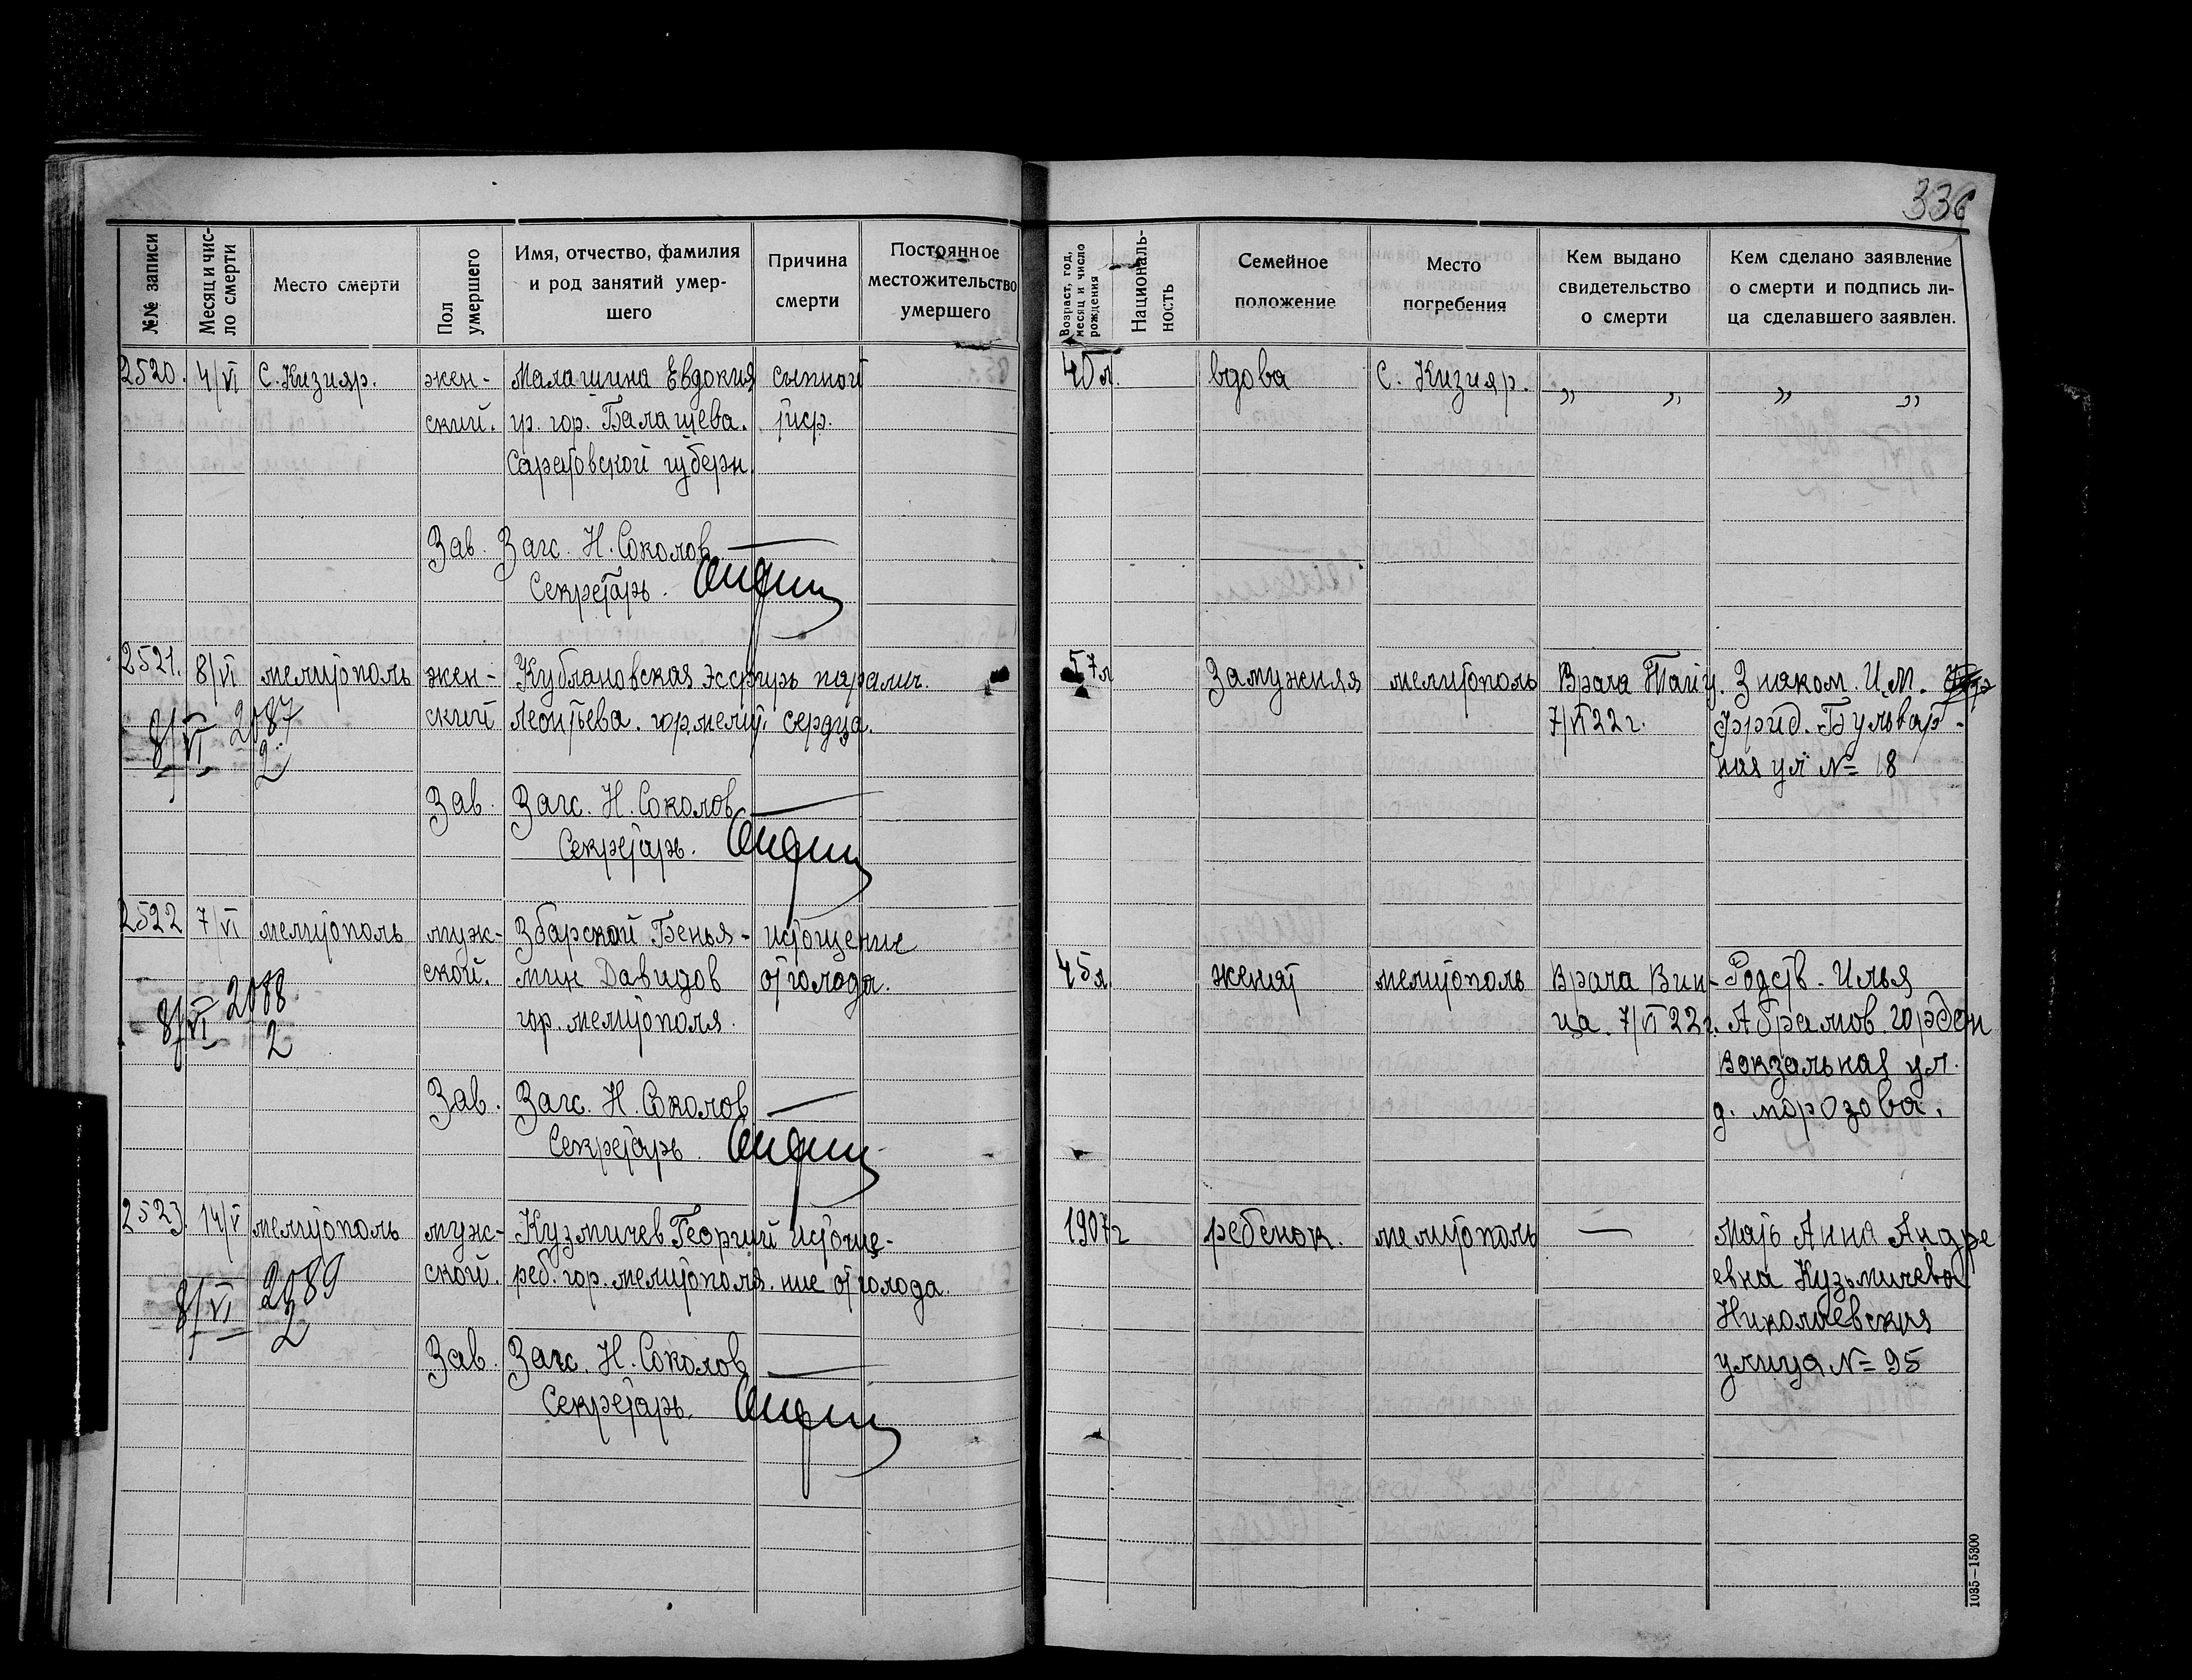 336
№№ записи
Месяц и чис-
ло смерти
Место смерти
Пол
умершего
Имя, отчество, фамилия
и род занятий умер-
шего
Причина
смерти
Постоянное
местожительство
умершего
Возраст, год,
месяц и число
рождения
Националь-
ность
Семейное
положение
Место
погребения
Кем выдано
свидетельство
о смерти
Кем сделано заявление
о смерти и подпись ли-
ца сделавшего заявлен.
2520. 4/VI С. Кизияр. жен- Малашина Евдокия сыпной 40 л. вдова С. Кизияр. „ „ „ „
ский. гр. гор. Балашева. тиф.
Саратовской губерн.
Зав. Загс. Н. Соколов
Секретарь.
2521. 8/VI мелитополь жен- Кублановская Эсфирь паралич. 57 л замужняя мелитополь Врача Танц. Знаком. И.М.
ский Леонтьева. гор. мелит. сердца. 7/VI 22 г. Фрид. Бульвар-
8/VI 2087 ная ул № 18
2
Зав. Загс. Н. Соколов
Секретарь.
2522 7/VI мелитополь муж- Збарской Бенья- истощение 45 л женат мелитополь Врача Вин- Родств. Илья
ской. мин Давидов от голода. ца. 7/VI 22 г. Абрамов. гордон
8/VI 2088 гор. мелитополя. Вокзальная ул.
2 д. морозова.
Зав. Загс. Н. Соколов
Секретарь.
2523. 14/V мелитополь муж- Кузмичев Георгий истоще- 1907 г ребенок. мелитополь — Мать Анна Андре
ской. реб. гор. мелитополя. ние от голода. евна Кузьмичева
8/VI 2089 Николаевская
2 улица № 95
Зав. Загс. Н. Соколов
Секретарь.
1035—15300